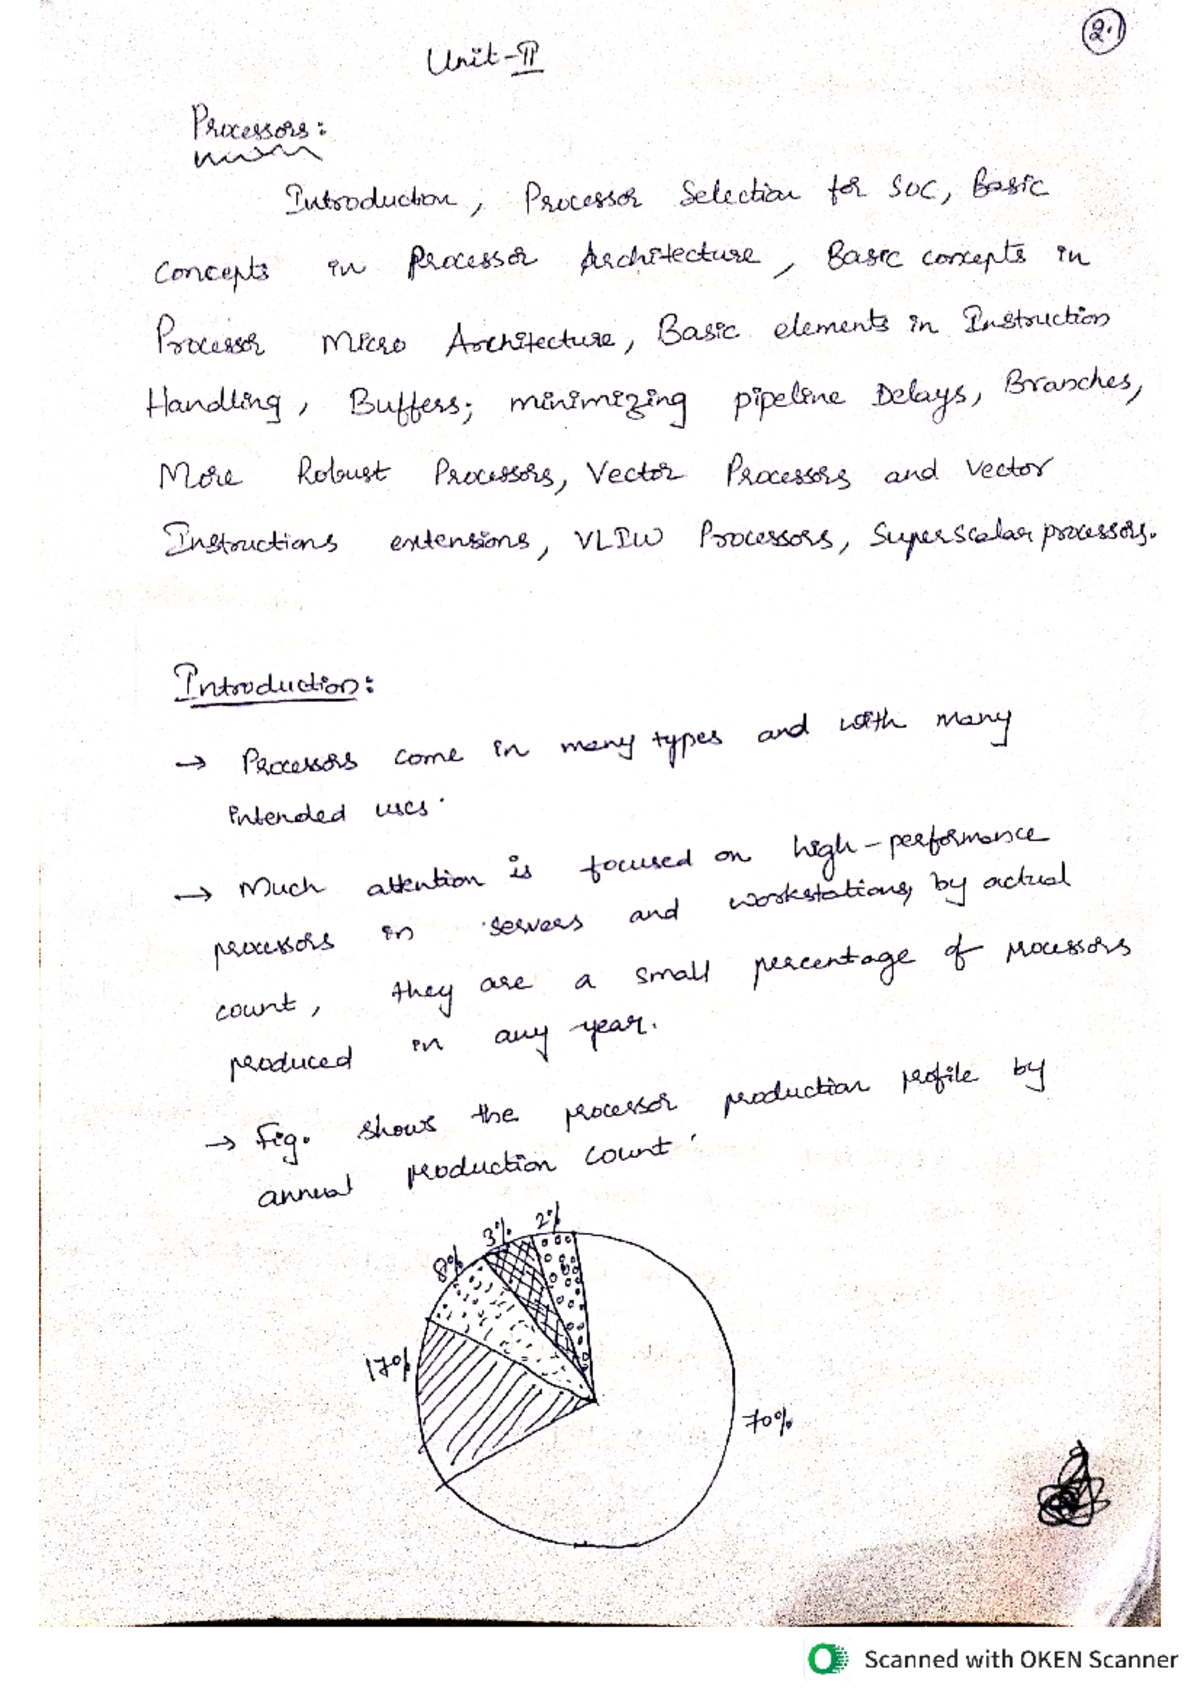 2.1
Unit-II
Processors:
Introduction, Processor Selection for SOC, Basic
concepts in Processor Architecture, Basic concepts in
Processor Micro Architecture, Basic elements in Instruction
Handling, Buffers; minimizing pipeline Delays, Branches,
More Robust Processors, Vector Processors and Vector
Instructions extensions, VLIW Processors, Superscalar processors.
Introduction:
→ Processors come in many types and with many
intended uses.
→ Much attention is focused on high-performance
processors in servers and workstations, by actual
count, they are a small percentage of processors
produced in any year.
→ Fig. shows the processor production profile by
annual production count.
2%
3%
8%
17%
70%
Scanned with OKEN Scanner